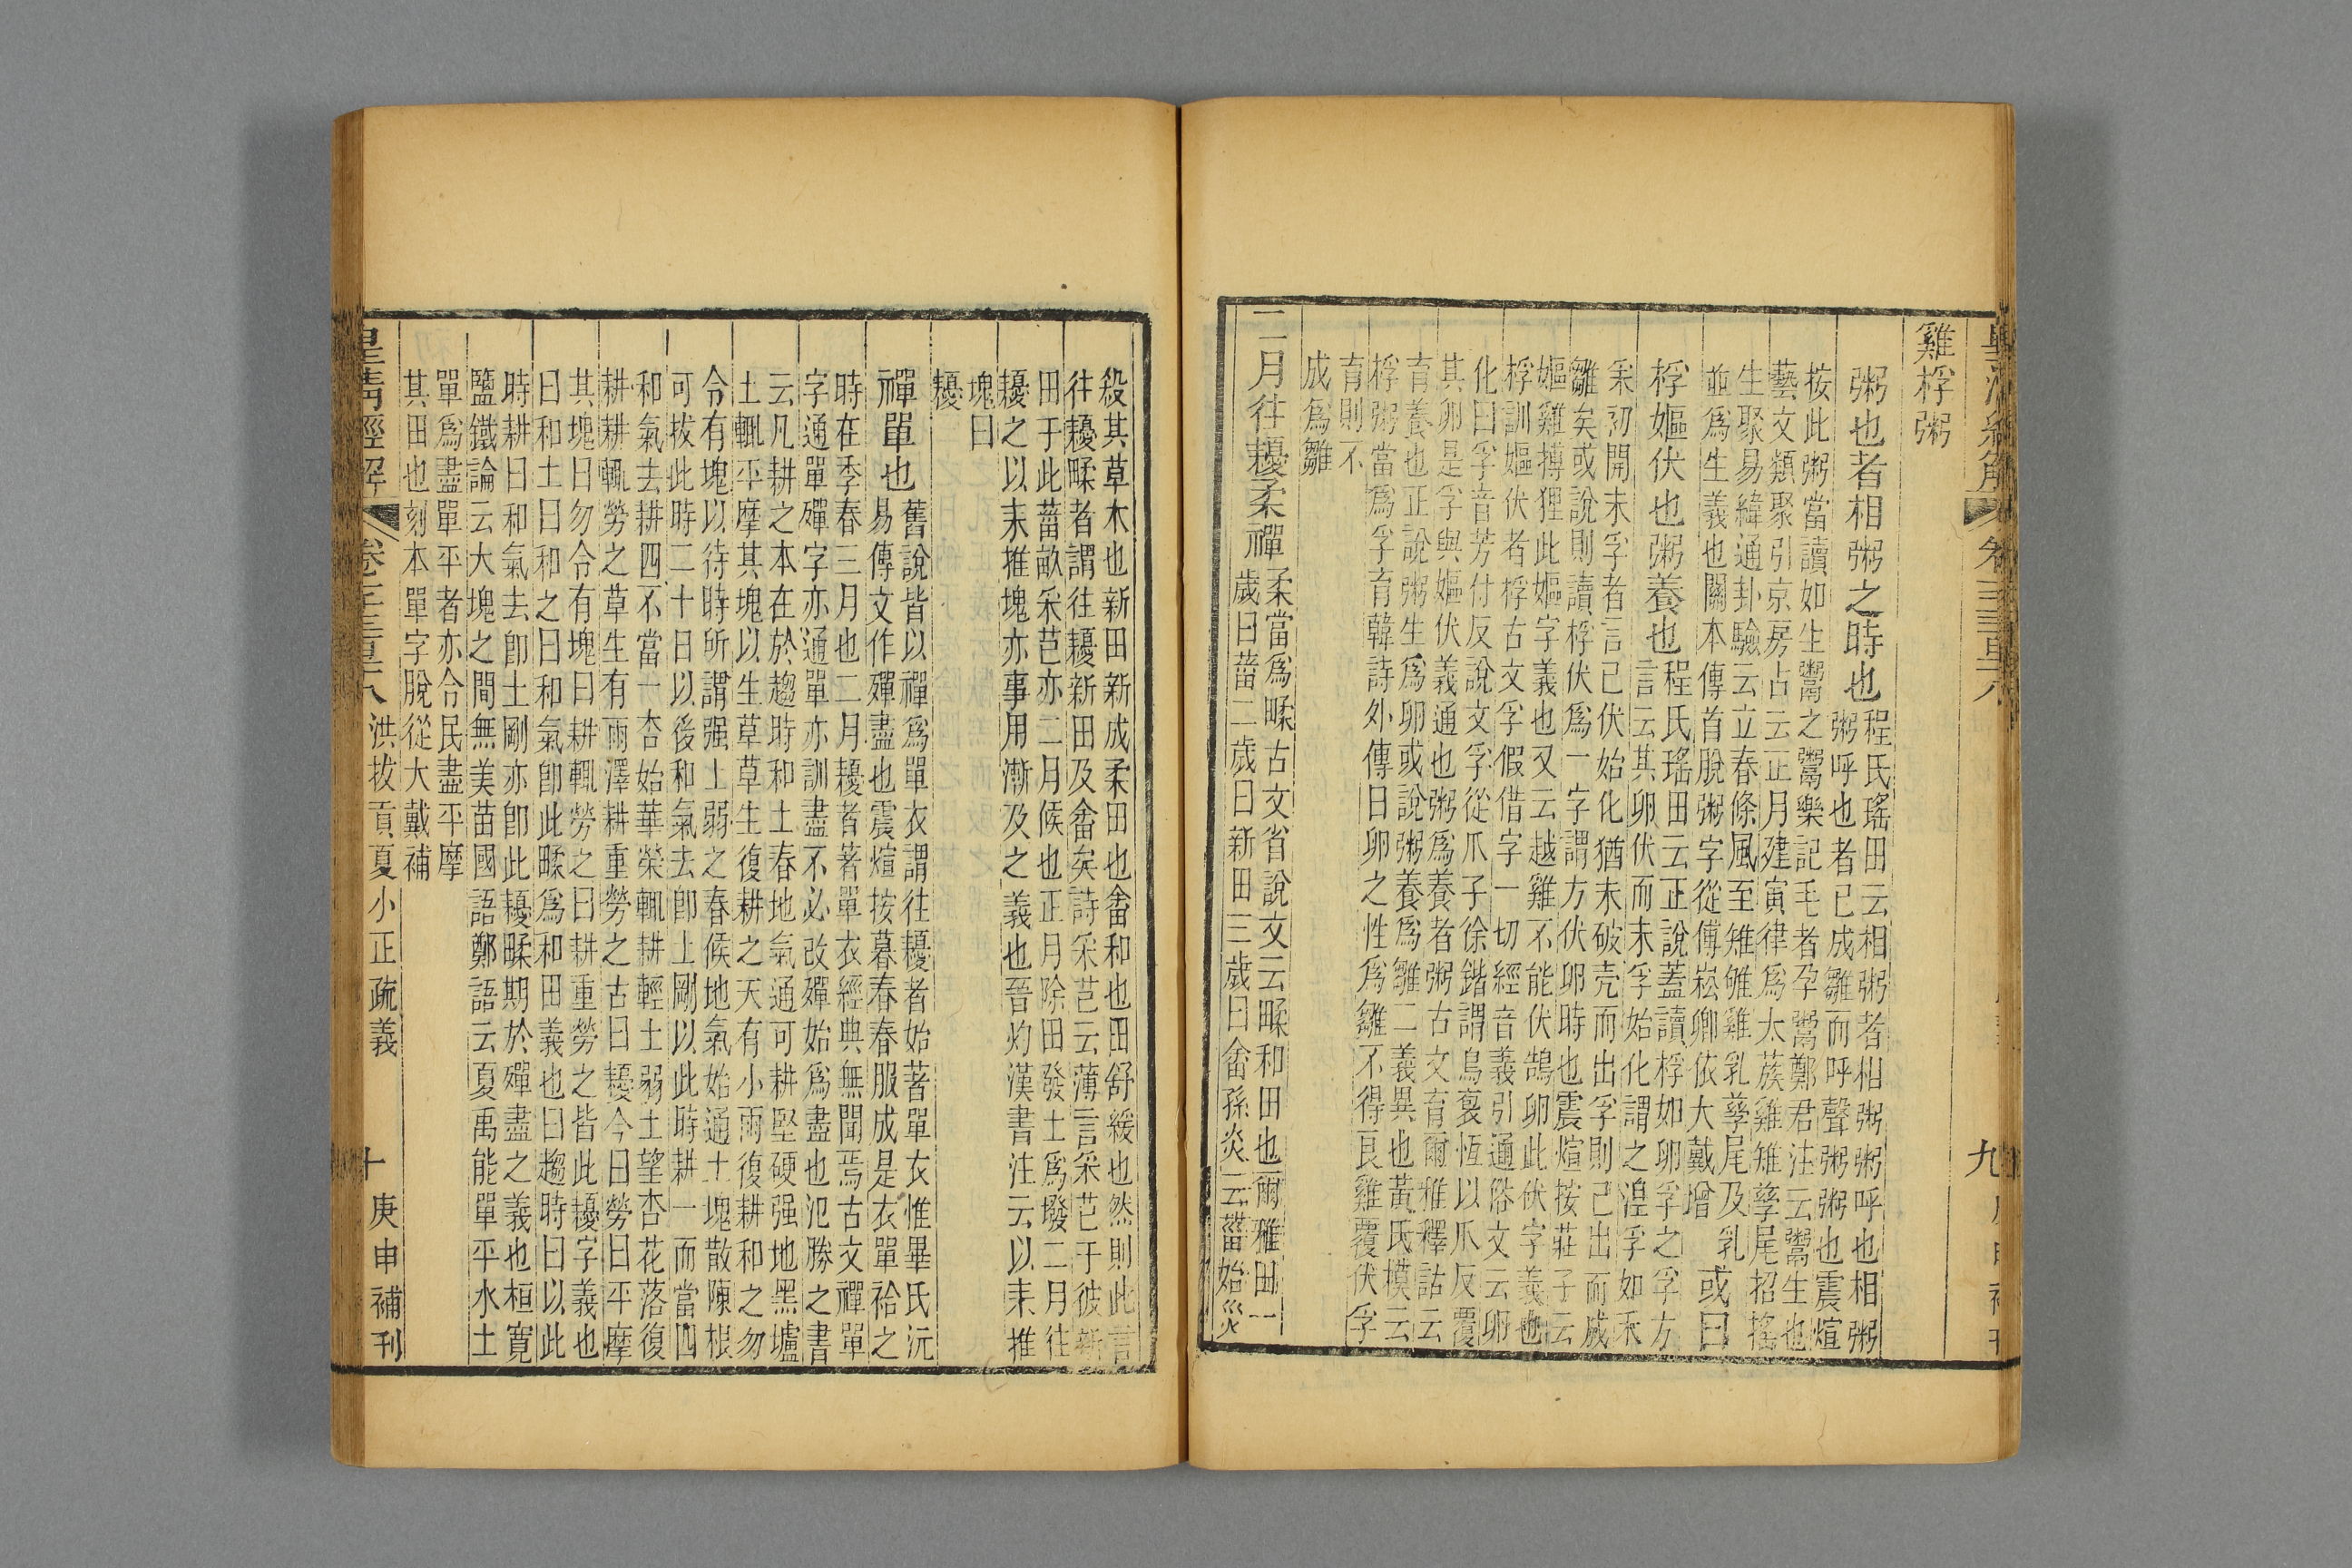 雞桴粥
粥也者相粥之時也
程氏瑤田云相粥者相粥粥呼也相粥
粥呼也者已成雛而呼聲粥粥也震煊
按此粥當讀如生鬻之鬻樂記毛者孕鬻鄭君注云鬻生也
藝文類聚引京房占云正月建寅律為太蔟雞雉孳尾招搖
生聚易緯通卦驗云立春條風至雉雊雞乳孳尾及乳
並爲生義也關本傳首脫粥字從傳崧卿依大戴增
或曰
桴嫗伏也粥養也
程氏瑤田云正說蓋讀桴如卵孚之孚方
言云其卵伏而未孚始化謂之涅孚如禾
采初開未孚者言已伏始化猶未破壳而出孚則已出而成
雛矣或說則讀桴伏爲一字謂方伏卵時也震煊按莊子云
嫗雞搏狸此嫗字義也又云越雞不能伏鵠卵此伏字義也
桴訓嫗伏者桴古文孚假借字一切經音義引通俗文云卵
化曰孚音芳付反說文孚從爪子徐鍇謂鳥裒恆以爪反覆
其卵是孚與嫗伏義通也粥爲養者粥古文育爾雅釋詁云
育養也正說粥生爲卵或說粥養爲雛二義異也黃氏模云
桴粥當爲孚育韓詩外傳曰卵之性爲雛不得良雞覆伏孚
育則不
成爲雛
二月往耰柔禪
柔當爲畴古文省說文云畴和田也爾雅田一
歲曰菑二歲曰新田三歲曰畬孫炎云菑始災
殺其草木也新田新成柔田也畬和也田舒緩也然則此言
往耰畴者謂往耰新田及畬矣詩采芑云薄言采芑于彼新
田于此菑畝采芑亦二月候也正月除田發土爲墢二月往
耰之以耒推塊亦事用漸及之義也晉灼漢書注云以耒推
塊曰
耰
禪單也
舊說皆以禪爲單衣謂往耰者始著單衣惟畢氏沅
易傳文作殫盡也震煊按暮春春服成是衣單袷之
時在季春三月也二月耰者著單衣經典無聞焉古文禪單
字通單殫字亦通單亦訓盡不必改殫始爲盡也氾勝之書
云凡耕之本在於趨時和土春地氣通可耕堅硬强地黑壚
土輒平摩其塊以生草草生復耕之天有小雨復耕和之勿
令有塊以待時所謂强土弱之春候地氣始通土塊散陳根
可拔此時二十日以後和氣去卽土剛以此時耕一而當四
和氣去耕四不當一杏始華榮輒耕輕土弱土望杏花落復
耕耕輒勞之草生有雨澤耕重勞之古曰耰今曰勞曰平摩
其塊曰勿令有塊曰耕輒勞之曰耕重勞之皆此耰字義也
曰和土曰和之曰和氣卽此畴爲和田義也曰趨時曰以此
時耕曰和氣去卽土剛亦卽此耰畴期於殫盡之義也桓寬
鹽鐵論云大塊之間無美苗國語鄭語云夏禹能單平水土
單爲盡單平者亦合民盡平摩
其田也刻本單字脫從大戴補
皇清經解
洪拔貢夏小正疏義
十
庚申補刊
九